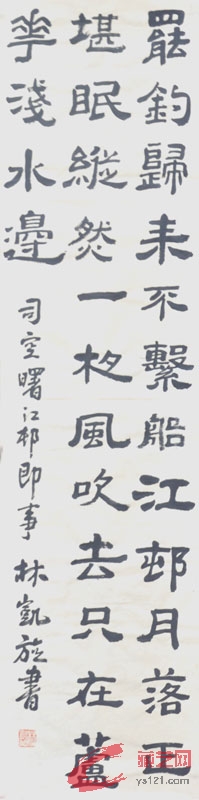 罷釣歸来不繫船江邨月落正
堪眠縱然一夜風吹去只在蘆
華淺水邊
司空曙江邨即事 林凱旋書
ys121.com